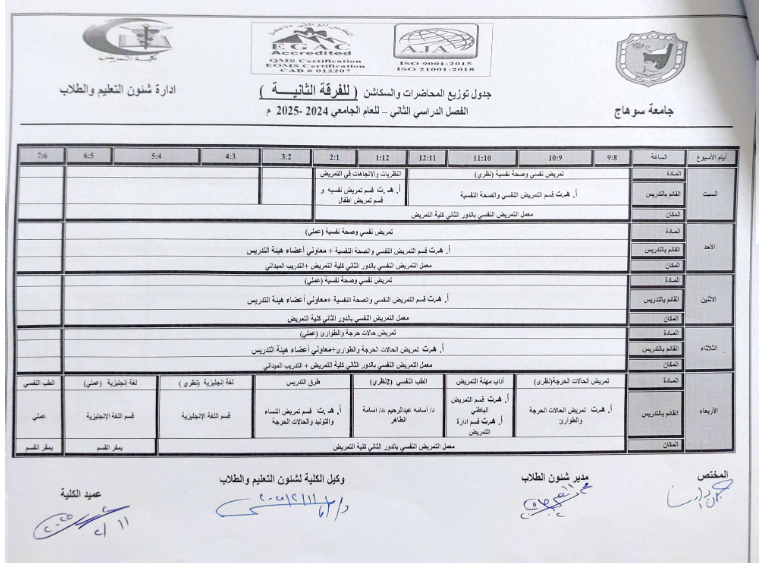 كلية التمريض
ادارة شئون التعليم والطلاب
EGAC
Accredited
QMS Certification
EOMS Certification
CAB # 012207
AJA
ISO 9001:2015
ISO 21001:2018
جامعة سوهاج
جدول توزيع المحاضرات والسكاشن ( للفرقة الثانية )
الفصل الدراسي الثاني – للعام الجامعي 2024 -2025 م
أيام الأسبوع الساعة 9:8 10:9 11:10 12:11 1:12 2:1 3:2 4:3 5:4 6:5 7:6
السبت
المادة تمريض نفسي وصحة نفسية (نظري) النظريات والاتجاهات في التمريض
القائم بالتدريس أ. هـ.ت قسم التمريض النفسي والصحة النفسية أ. هـ.ت قسم تمريض نفسيه و قسم تمريض اطفال
المكان معمل التمريض النفسي بالدور الثاني كلية التمريض
الأحد
المادة تمريض نفسي وصحة نفسية (عملي)
القائم بالتدريس أ. هـ.ت قسم التمريض النفسي والصحة النفسية + معاوني أعضاء هيئة التدريس
المكان معمل التمريض النفسي بالدور الثاني كلية التمريض +التدريب الميداني
الاثنين
المادة تمريض نفسي وصحة نفسية (عملي)
القائم بالتدريس أ. هـ.ت قسم التمريض النفسي والصحة النفسية +معاوني أعضاء هيئة التدريس
المكان معمل التمريض النفسي بالدور الثاني كلية التمريض
الثلاثاء
المادة تمريض حالات حرجة والطوارئ (عملي)
القائم بالتدريس أ. هـ.ت تمريض الحالات الحرجة والطوارئ+معاوني أعضاء هيئة التدريس
المكان معمل التمريض النفسي بالدور الثاني كلية التمريض + التدريب الميداني
الأربعاء
المادة تمريض الحالات الحرجة(نظري) آداب مهنة التمريض الطب النفسي (نظري) طرق التدريس لغة إنجليزية (نظري ) لغة إنجليزية (عملي) الطب النفسي
القائم بالتدريس أ. هـ.ت تمريض الحالات الحرجة والطوارئ أ. هـ.ت قسم التمريض الباطني أ. هـ.ت قسم ادارة التمريض د/ أسامه عبدالرحيم /د اسامة الطاهر أ. هـ.ت قسم تمريض النساء والتوليد والحالات الحرجة قسم اللغة الإنجليزية قسم اللغة الإنجليزية عملي
المكان معمل التمريض النفسي بالدور الثاني كلية التمريض بمقر القسم بمقر القسم
المختص
مدير شئون الطلاب
وكيل الكلية لشئون التعليم والطلاب
عميد الكلية